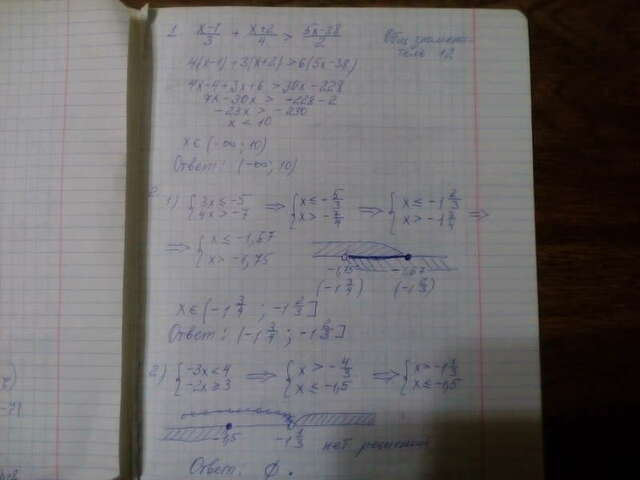 1 (x-1)/3 + (x+2)/4 > (5x-38)/2 Общ знамена-
тель 12
4(x-1)+3(x+2)>6(5x-38)
4x-4+3x+6>30x-228
7x-30x > -228-2
-23x > -230
x < 10
x ∈ (-∞; 10)
Ответ: (-∞; 10)
2
1) { 3x ≤ -5 ; 4x > -7 ⇒ { x ≤ -5/3 ; x > -7/4 ⇒ { x ≤ -1 2/3 ; x > -1 3/4 ⇒
⇒ { x ≤ -1,67 ; x > -1,75
-1,75 -1,67
(-1 3/4) (-1 2/3)
x ∈ (-1 3/4 ; -1 2/3]
Ответ: (-1 3/4 ; -1 2/3]
2) { -3x < 4 ; -2x ≥ 3 ⇒ { x > -4/3 ; x ≤ -1,5 ⇒ { x > -1 1/3 ; x ≤ -1,5
-1,5 -1 1/3 нет решений
Ответ: ∅.